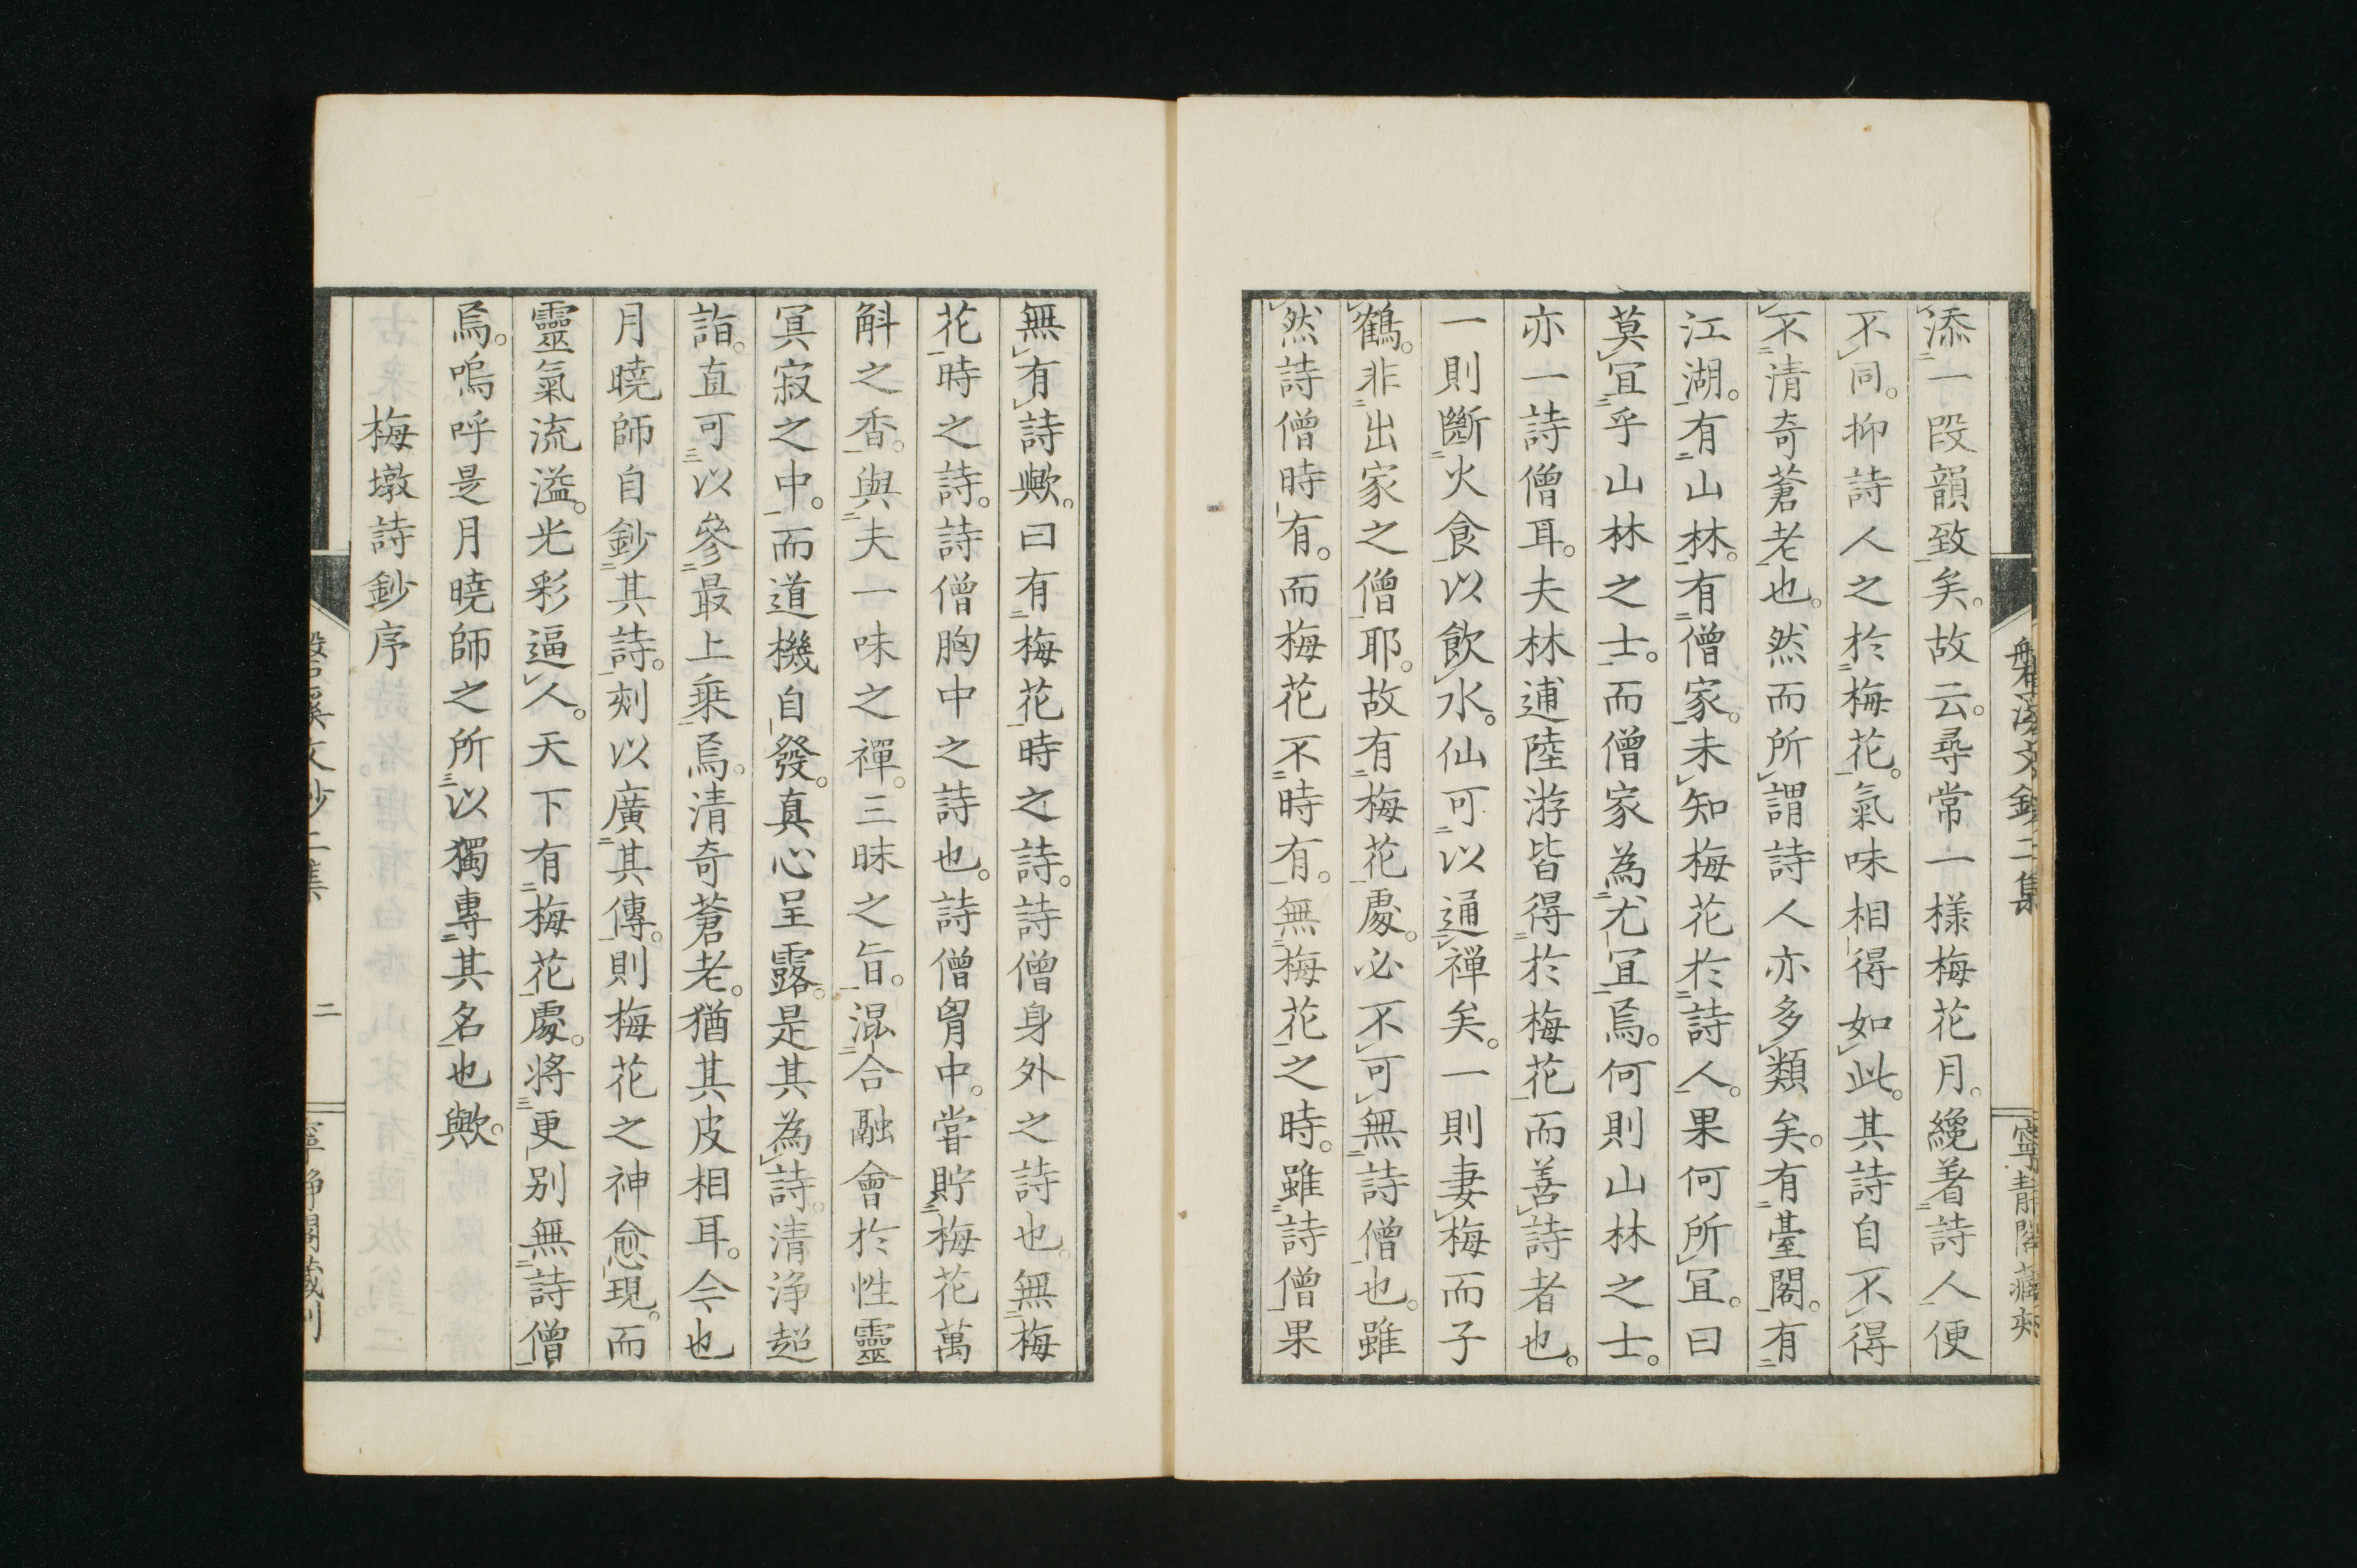 添一段韻致矣。故云。尋常一樣梅花月。纔著詩人便
不同。抑詩人之於梅花。氣味相得如此。其詩自不得
不清奇蒼老也。然而所謂詩人亦多類矣。有臺閣。有
江湖。有山林。有僧家。未知梅花於詩人。果何所宜。曰
莫宜乎山林之士。而僧家為尤宜焉。何則山林之士。
亦一詩僧耳。夫林逋陸游皆得於梅花而善詩者也。
一則斷火食以飲水。仙可以通禪矣。一則妻梅而子
鶴。非出家之僧耶。故有梅花處。必不可無詩僧也。雖
然詩僧時有。而梅花不時有。無梅花之時。雖詩僧果
無有詩歟。曰有梅花時之詩。詩僧身外之詩也。無梅
花時之詩。詩僧胸中之詩也。詩僧胷中。嘗貯梅花萬
斛之香。與夫一味之禪。三昧之旨。混合融會於性靈
冥寂之中。而道機自發。真心呈露。是其為詩。清浄超
詣。直可以參最上乗焉。清奇蒼老。猶其皮相耳。今也
月曉師自鈔其詩。刻以廣其傳。則梅花之神愈現。而
靈氣流溢。光彩逼人。天下有梅花處。將更別無詩僧
焉。嗚呼是月曉師之所以獨專其名也歟。
梅墩詩鈔序
二